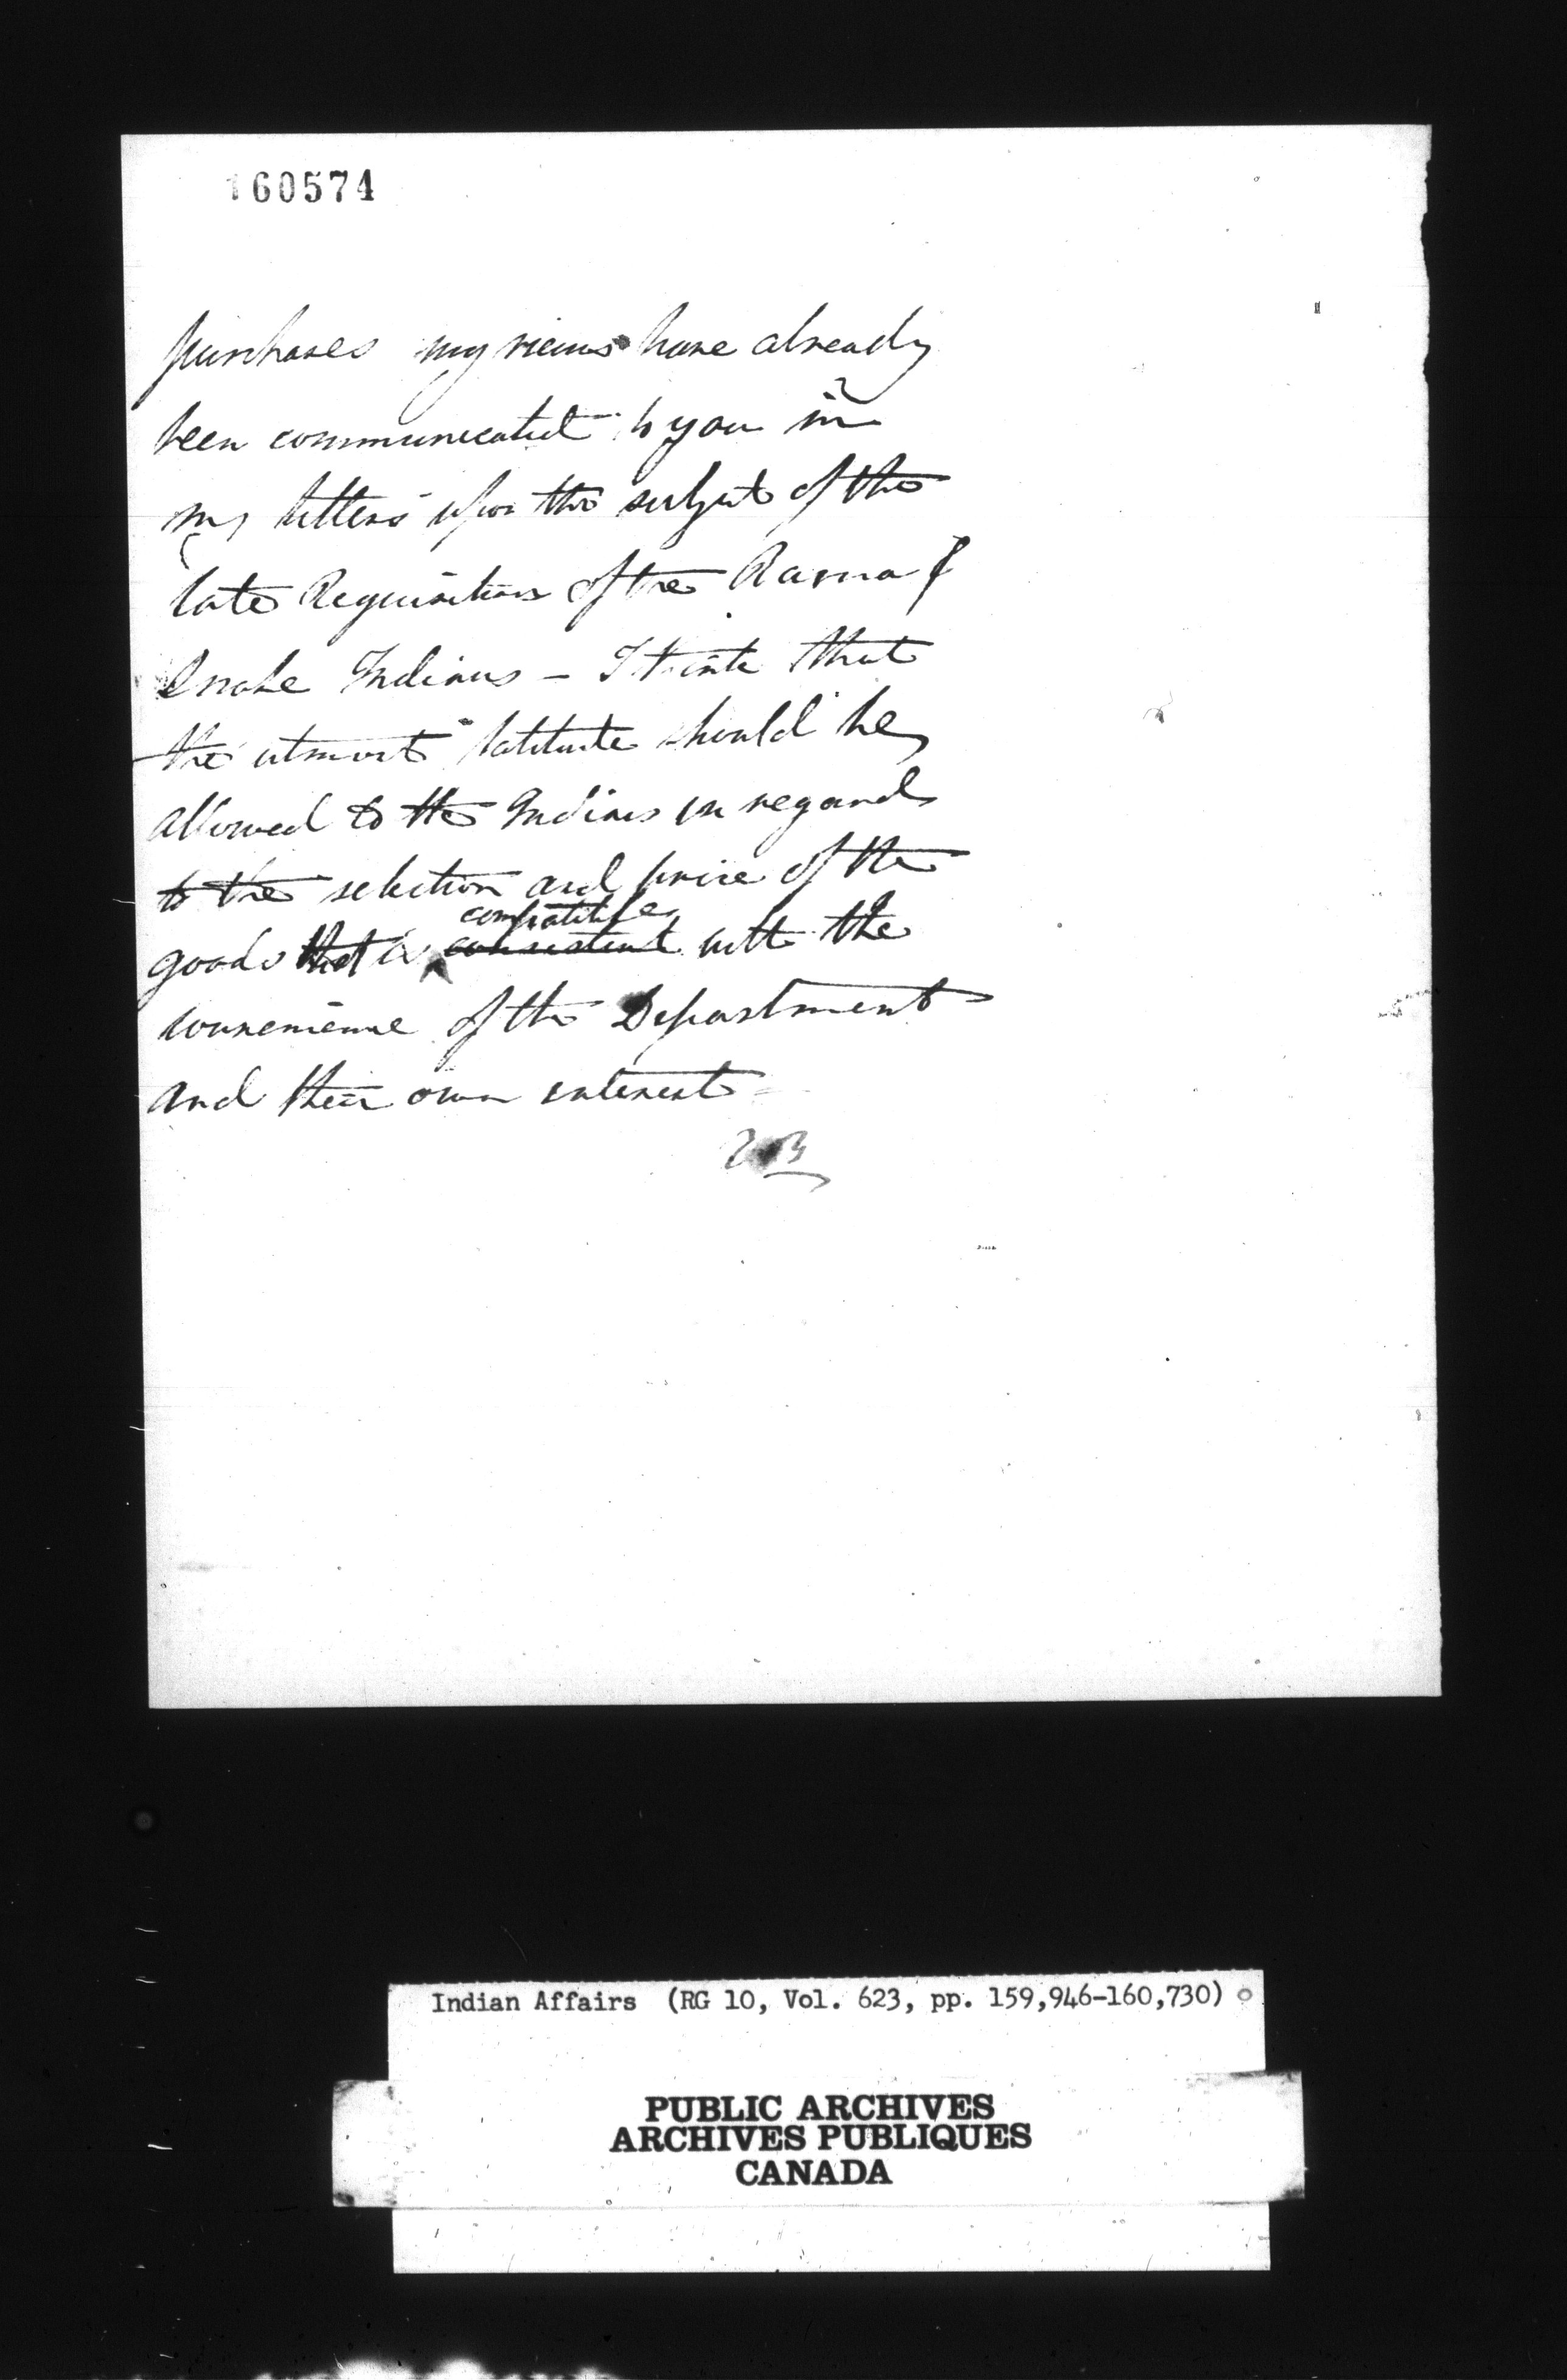 160574
purchases my views have already
been communicated to you in
my letters upon the subject of the
late Requisitions of the Rama &
Snake Indians – I think that
the utmost latitude should be
allowed to the Indians in regard
to the selection and price of the
compatible
goods that is consistent with the
convenience of the Department
and their own interest
Indian Affairs (RG 10, Vol. 623, pp. 159,946-160,730)
PUBLIC ARCHIVES
ARCHIVES PUBLIQUES
CANADA